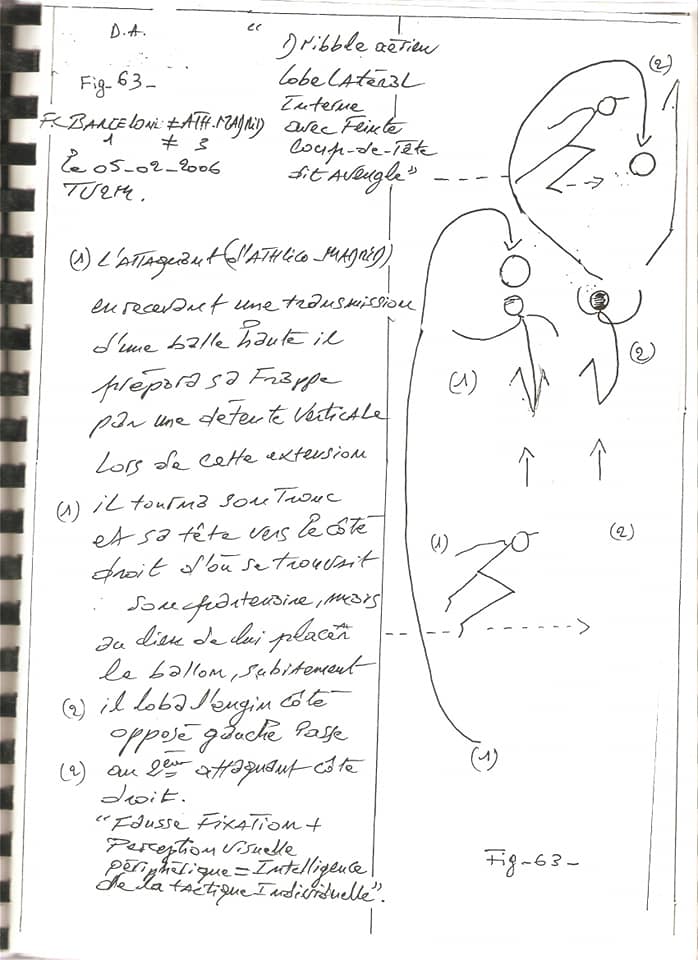 D.A.
Fig-63-
F.C BARCELONE ≠ ATH.MADRID
1 ≠ 3
le 05-02-2006
TV2M.
" Dribble aérien
lobe LAtéral
Interne
avec Feinte
Coup-de-Tête
dit Aveugle"
(1) L'ATTAquant (d'ATHlico-MADRID)
en recevant une transmission
d'une balle haute il
prépara sa Frappe
par une détente verticale
Lors de cette extension
(1) il tourna son Tronc
et sa tête vers le côté
droit d'où se trouvait
, mais
au lieu de lui placer
le ballon, subitement
(2) il loba l'engin côté
opposé gauche Passe
(2) au 2ème attaquant côté
droit.
"Fausse Fixation +
Perception visuelle
périphérique = Intelligence
de la tactique Individuelle".
(2)
1
(1)
(2)
(1)
(2)
(1)
Fig-63-